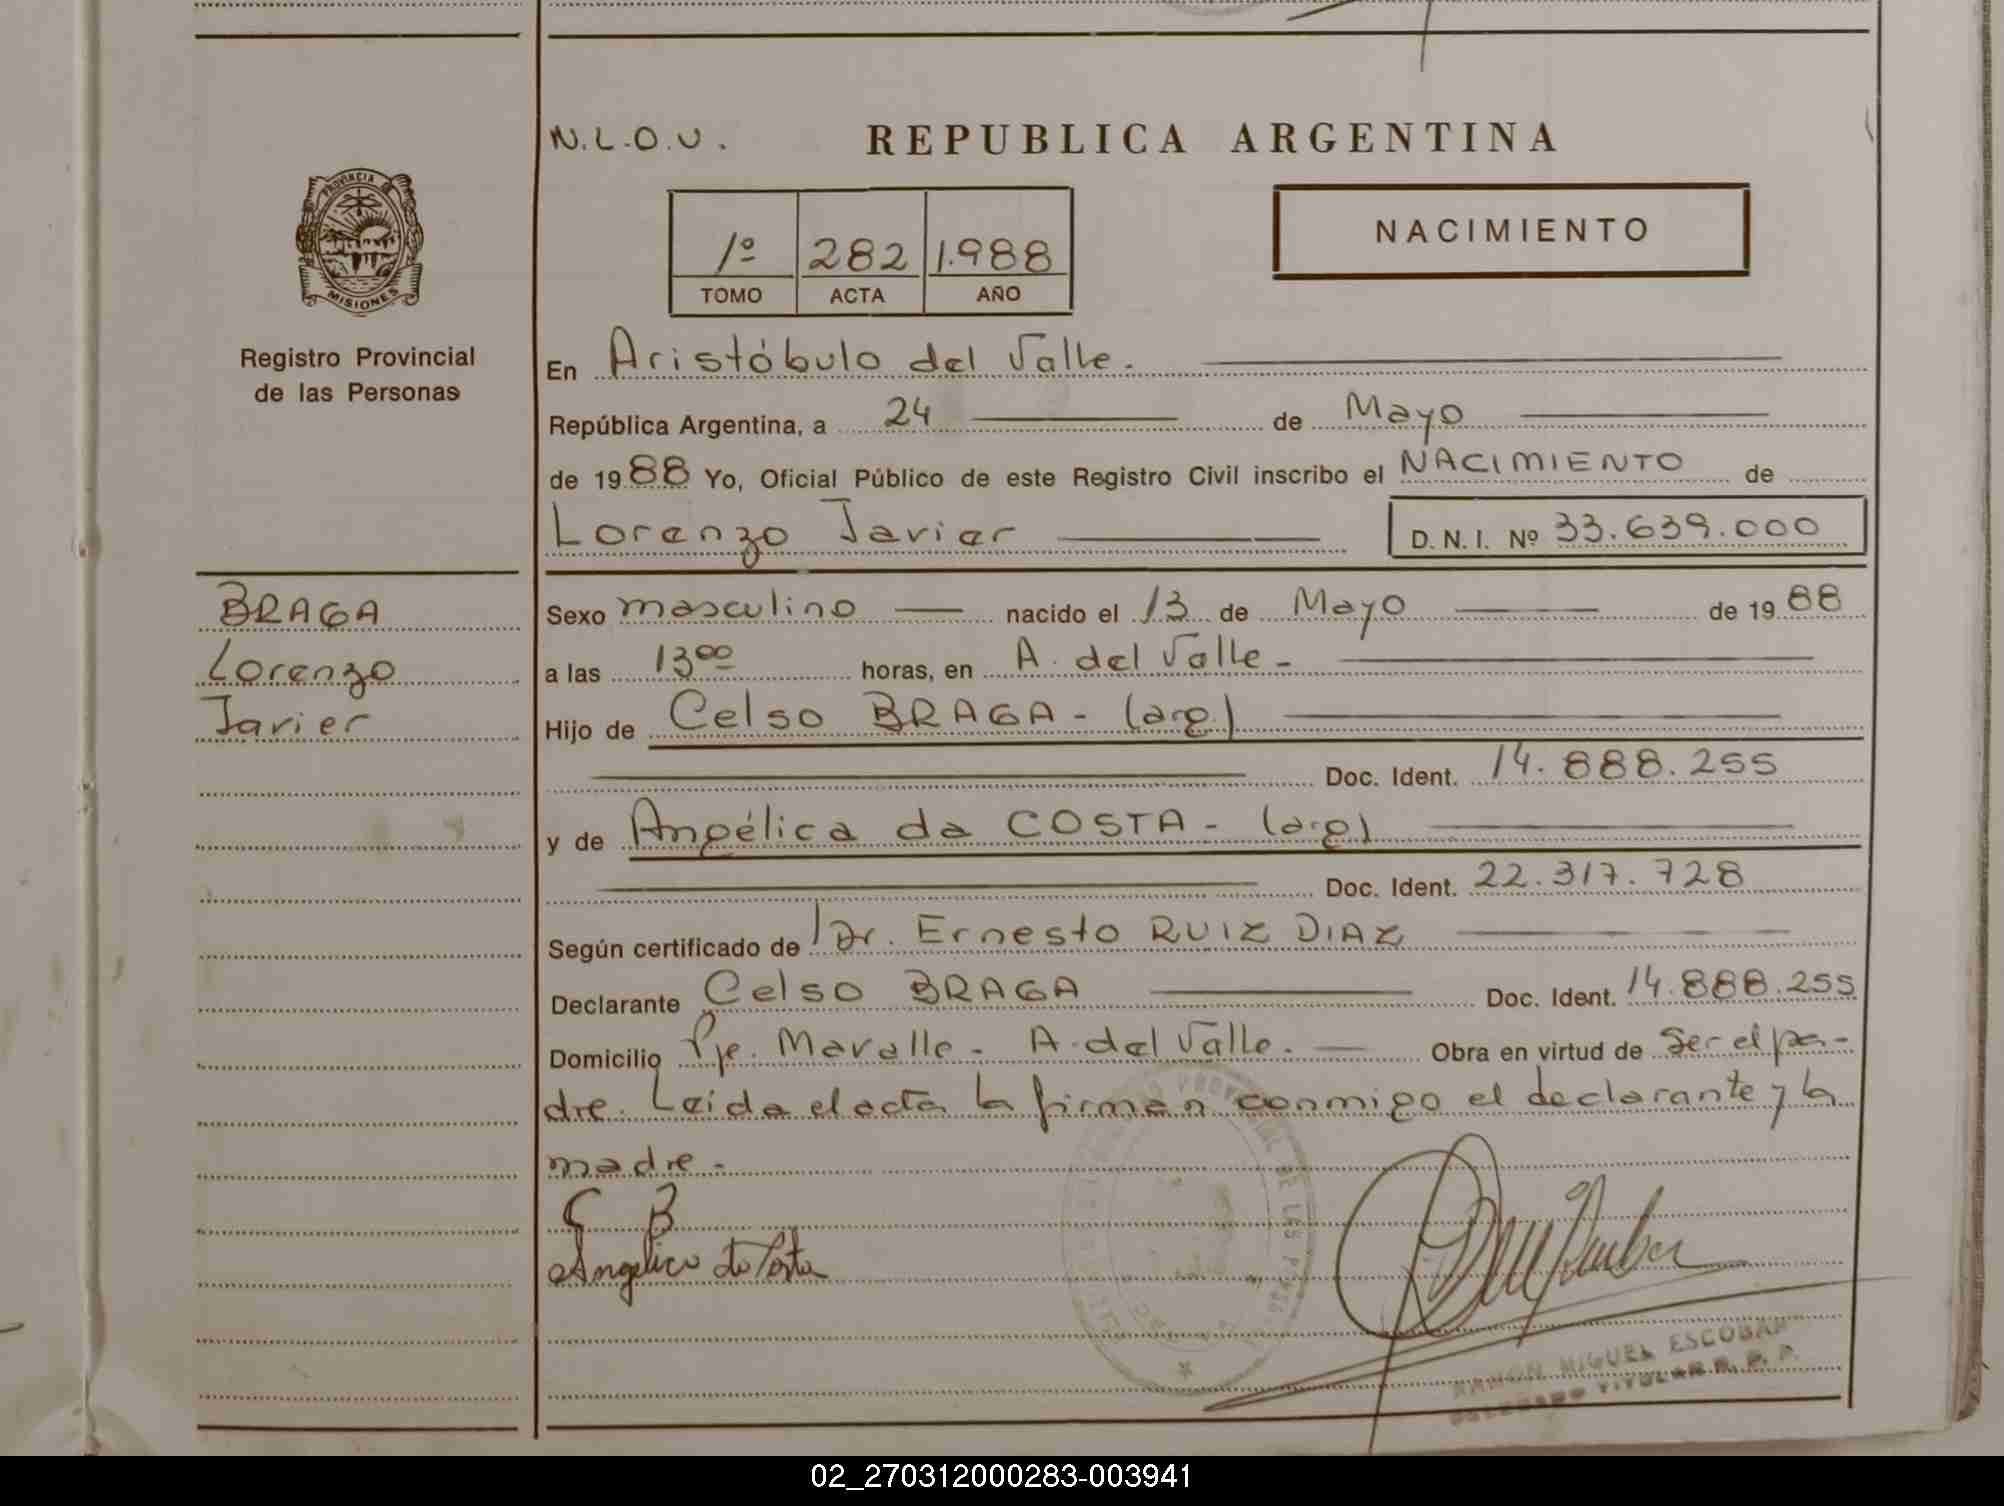 N.L.O.U.
REPUBLICA ARGENTINA
PROVINCIA DE
MISIONES
1º 282 1.988
TOMO ACTA AÑO
NACIMIENTO
Registro Provincial
de las Personas
En Aristóbulo del Valle.
República Argentina, a 24 de Mayo
de 1988 Yo, Oficial Público de este Registro Civil inscribo el NACIMIENTO de
Lorenzo Javier D. N. I. Nº 33.639.000
BRAGA
Lorenzo
Javier
Sexo masculino nacido el 13 de Mayo de 1988
a las 13⁰⁰ horas, en A. del Valle -
Hijo de Celso BRAGA - (arg.)
Doc. Ident. 14.888.255
y de Angélica da COSTA - (arg)
Doc. Ident. 22.317.728
Según certificado de Dr. Ernesto RUIZ DIAZ
Declarante Celso BRAGA Doc. Ident. 14.888.255
Domicilio Pje. Mavalle - A. del Valle. Obra en virtud de ser el pa-
dre. Leída el acta la firman conmigo el declarante y la
madre -
C B
Angelica da Costa
RAMON MIGUEL ESCOBAR
DELEGADO TITULAR R. P. P.
02_270312000283-003941